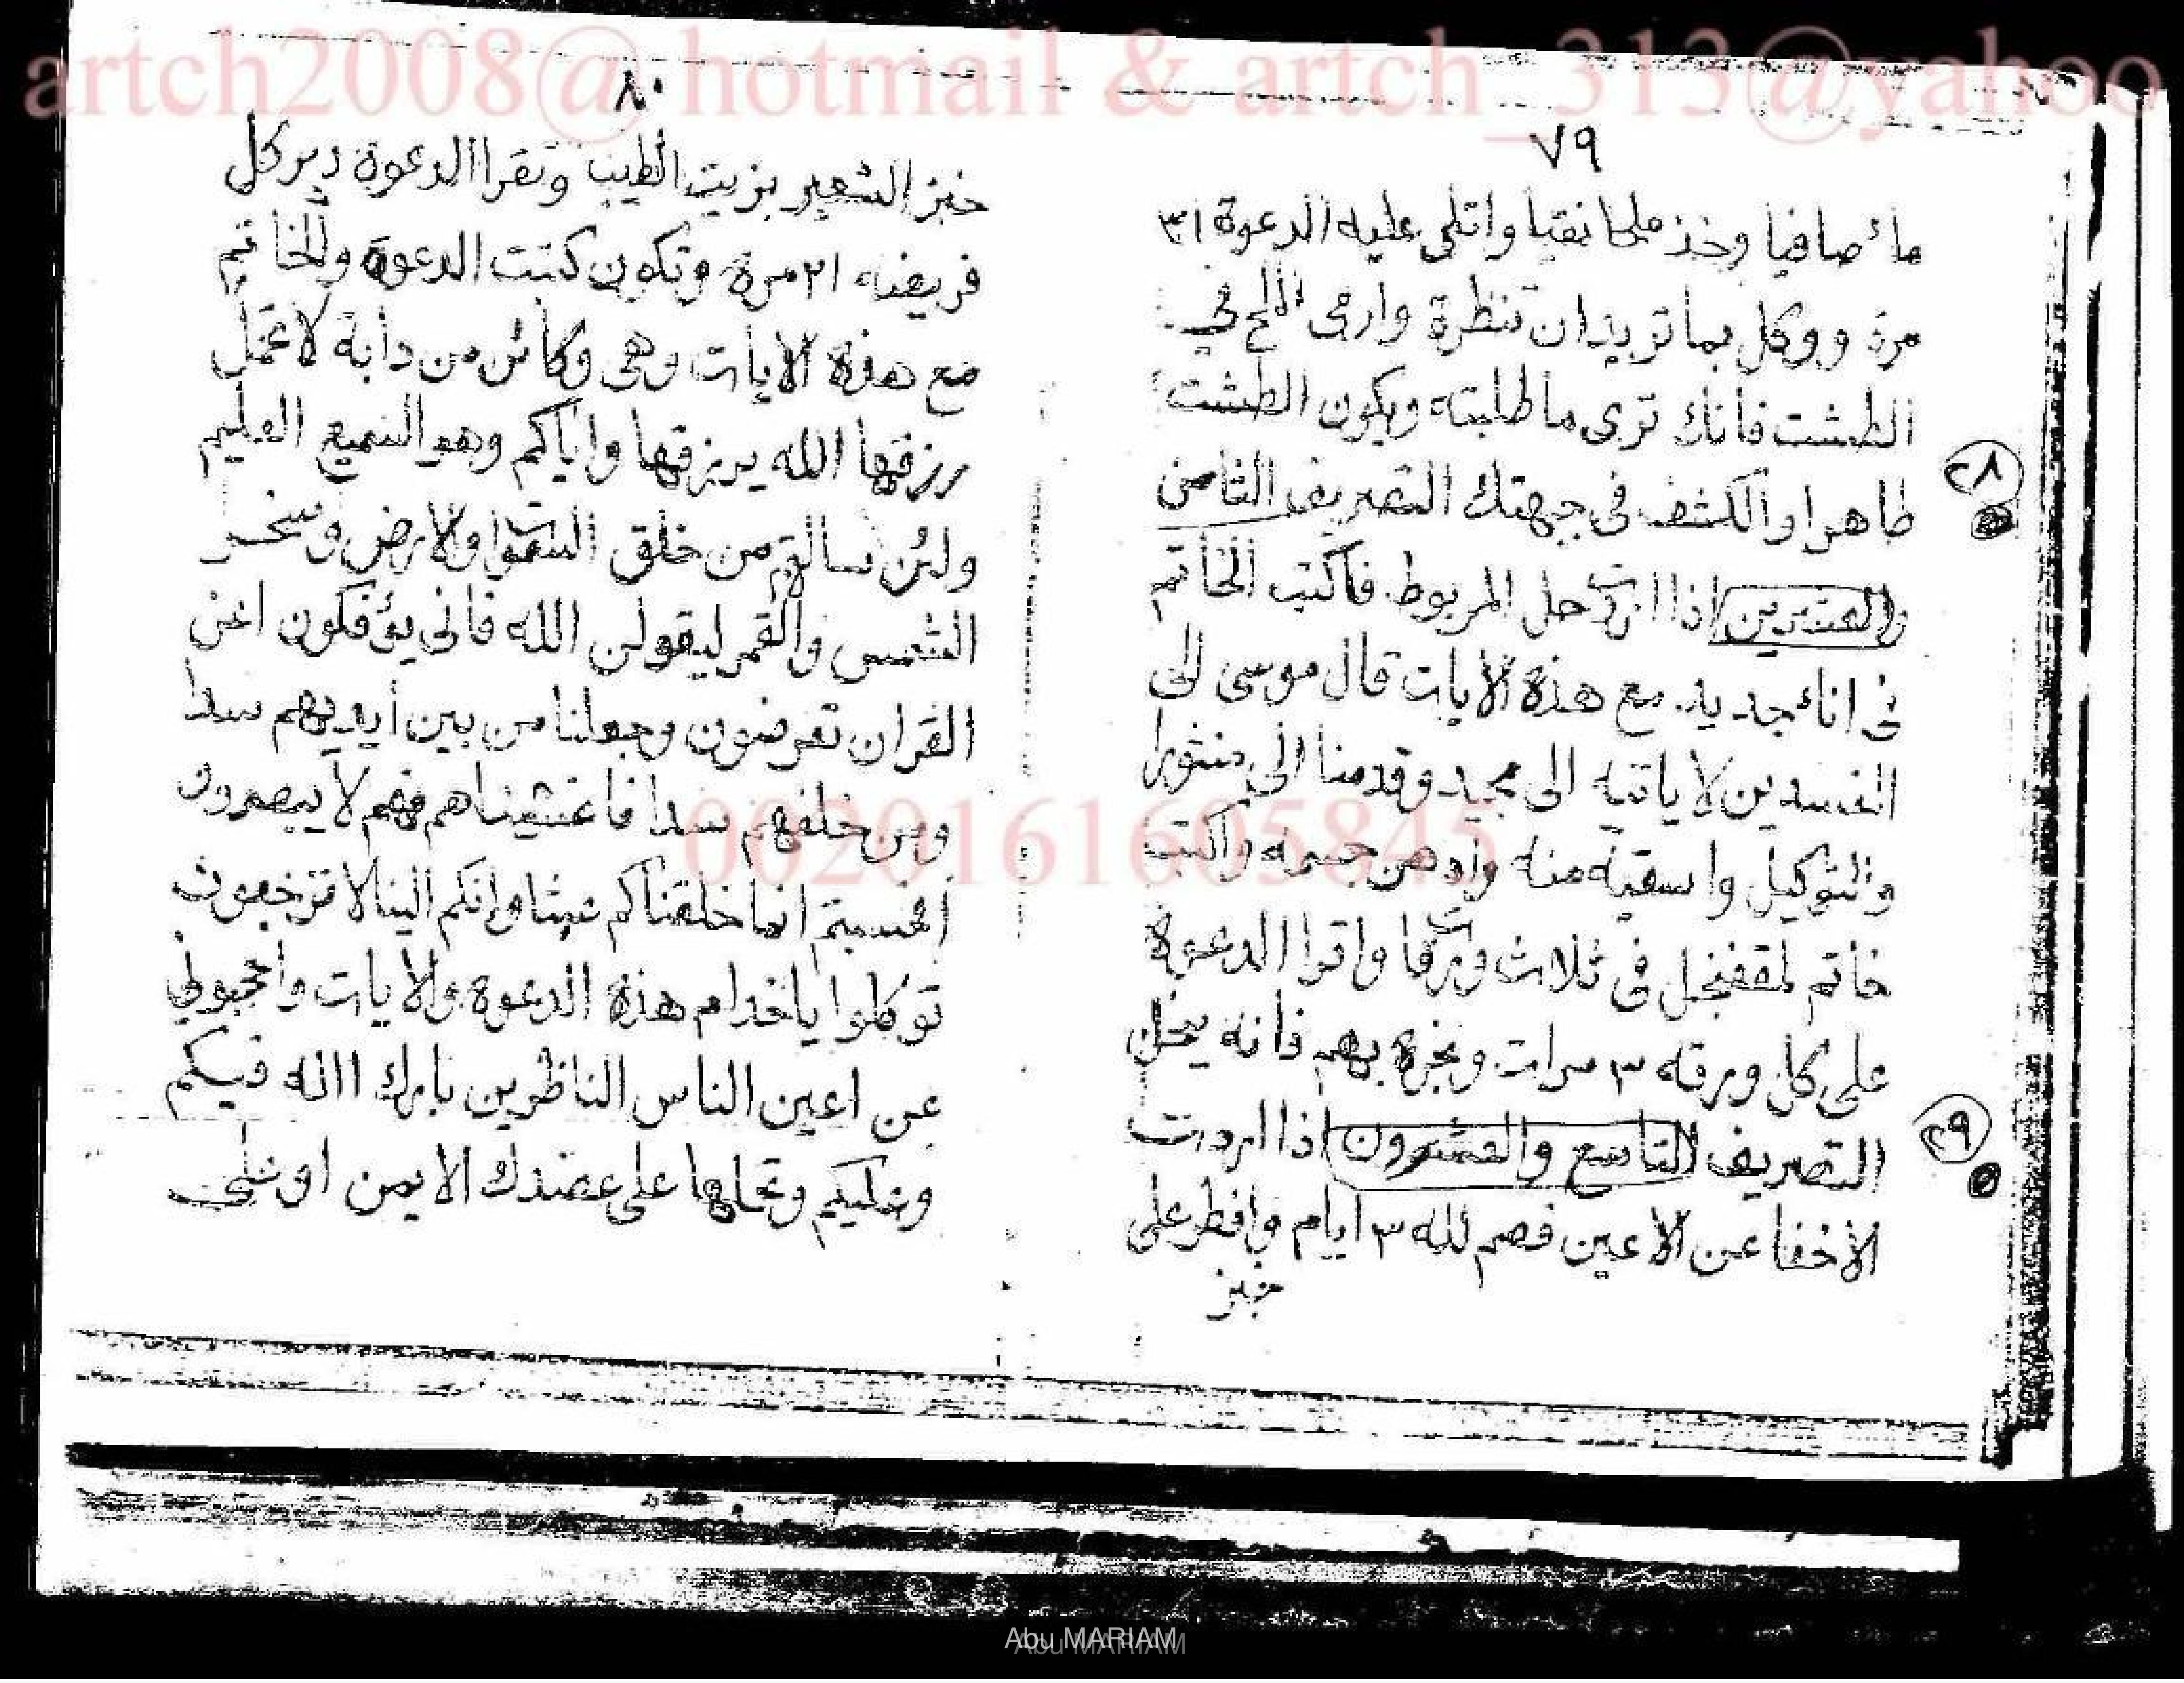 artch2008@hotmail & artch_313@yahoo
٧٩
ماء صافيا وخذ ملحا نقيا واتلى عليه الدعوة ٣١
مرة ووكل بما تريد ان تنظرة وارمى الملح في
الطشت فأنك ترى ما طلبته ويكون الطشت
طاهرا والكشف فى جهتك التصريف الثامن
٢٨
والعشرين اذا اردت حل المربوط فاكتب الخاتم
فى اناء جديد مع هذة الايات قال موسى الى
المفسدين لا ياتيه الى مجيد وقدمنا الى منثورا
والتوكيل واسقيه منه وادهن جسمه واكتب
خاتم لمقفنجل فى ثلاث ورقات واقرا الدعوة
على كل ورقه ٣ مرات وبخرة بهم فانه ينحل
٢٩
التصريف التاسع والعشرون اذا اردت
الاخفا عن الاعين فصم لله ٣ ايام وافطر على
خبز
٨٠
خبز الشعير بزيت الطيب وتقرا الدعوة دبر كل
فريضه ٢١ مرة وتكون كتبت الدعوة والخاتم
مع هذة الايات وهى وكأئن من دابة لا تحمل
رزقها الله يرزقها واياكم وهو السميع العليم
ولئن سالتهم من خلق السموات والارض وسخر
الشمس والقمر ليقولن الله فانى يؤفكون اعن
القران تعرضون وجعلنا من بين أيديهم سدا
ومن خلفهم سدا فاغشيناهم فهم لا يبصرون
افحسبتم انما خلقناكم عبثا وانكم الينا لا ترجعون
توكلوا ياخدام هذة الدعوة والايات واحجبونى
عن اعين الناس الناظرين بارك الله فيكم
وعليكم وتحملها على عضدك الايمن او
0020161605845
Abu MARIAM